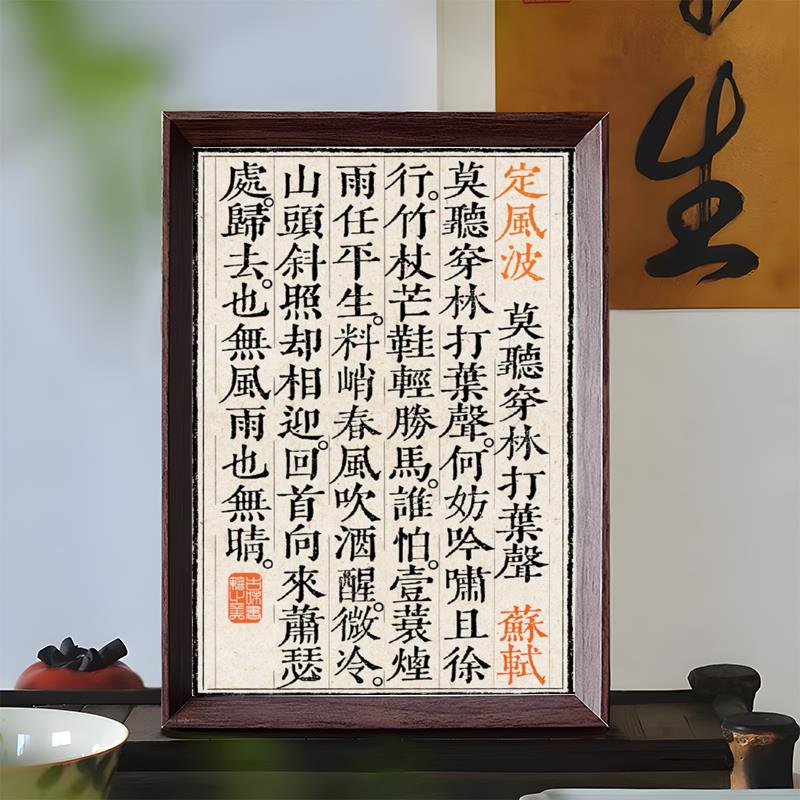 生
定風波 莫聽穿林打葉聲 蘇軾
莫聽穿林打葉聲。何妨吟嘯且徐
行。竹杖芒鞋輕勝馬。誰怕。壹蓑煙
雨任平生。料峭春風吹酒醒。微冷。
山頭斜照却相迎。回首向來蕭瑟
處。歸去。也無風雨也無晴。